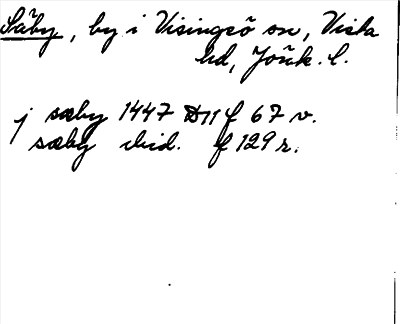 Säby, by i Visingsö sn, Vista
hd, Jönk. l.
j sæby 1447 D11 f 67 v.
sæby ibid. f 129 r.